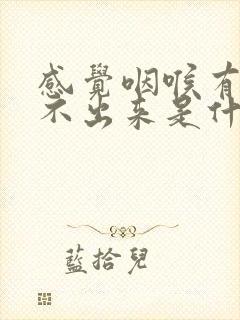 感覺咽喉有
不出來是什
藍拾兒